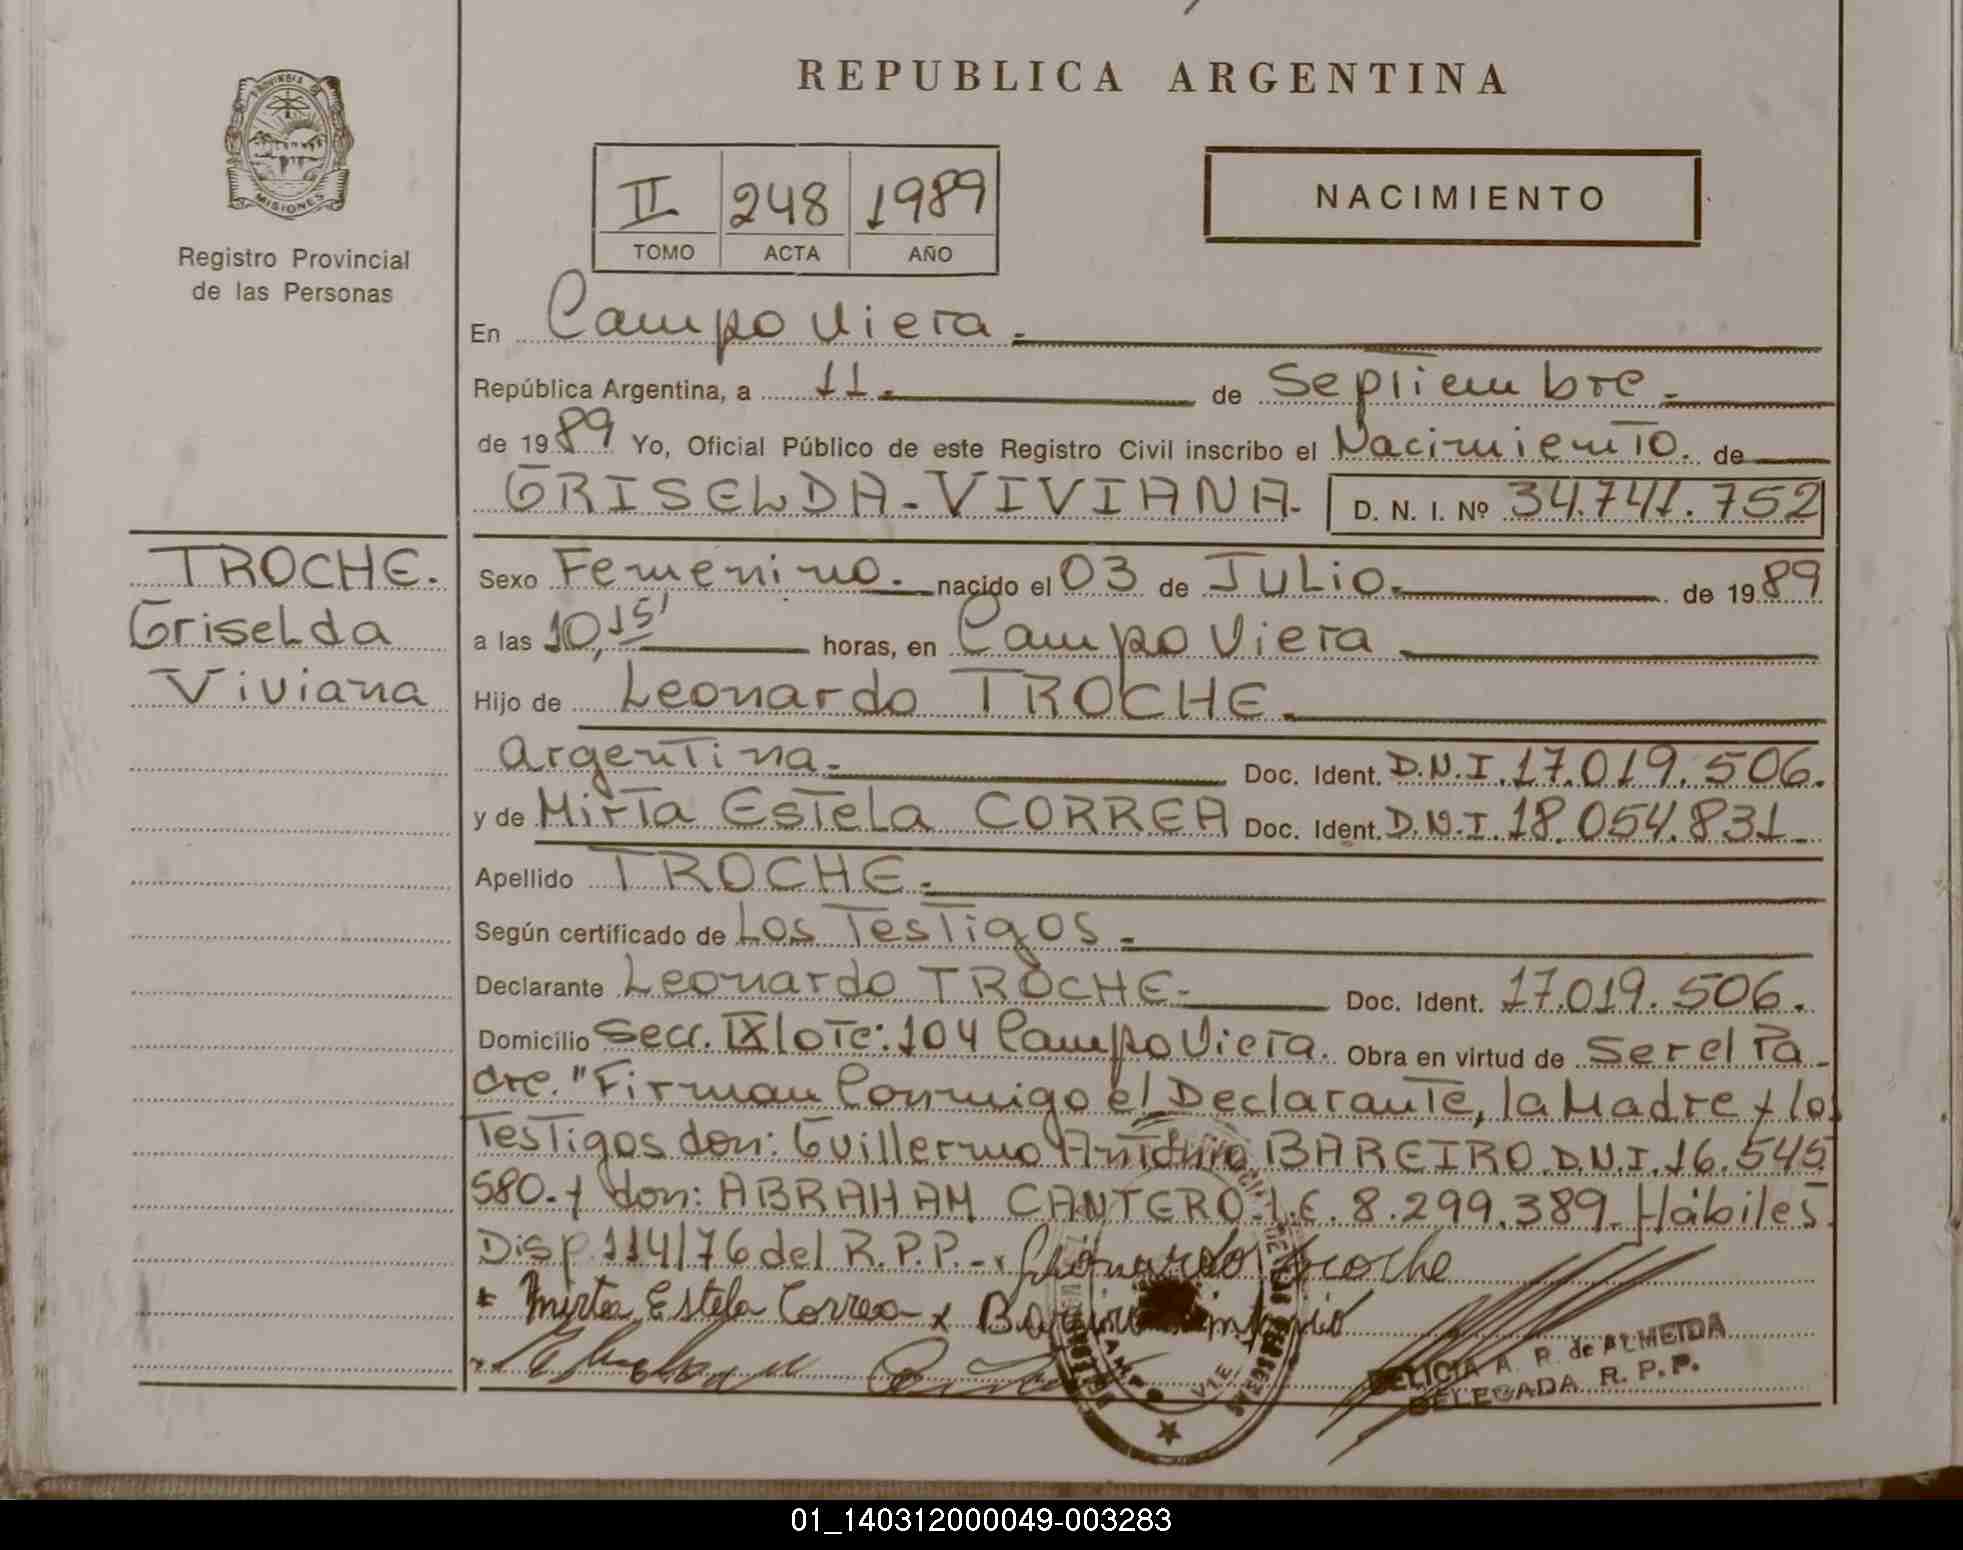 REPUBLICA ARGENTINA
PROVINCIA DE
MISIONES
Registro Provincial
de las Personas
II 248 1989
TOMO ACTA AÑO
NACIMIENTO
En Campo Viera.
República Argentina, a 11. de Septiembre.
de 1989 Yo, Oficial Público de este Registro Civil inscribo el Nacimiento. de
GRISELDA-VIVIANA- D. N. I. Nº 34.741.752
TROCHE.
Griselda
Viviana
Sexo Femenino. nacido el 03 de Julio. de 1989
a las 10,15' horas, en Campo Viera
Hijo de Leonardo TROCHE.
argentina. Doc. Ident. D.N.I. 17.019.506.
y de Mirta Estela CORREA Doc. Ident. D.N.I. 18.054.831
Apellido TROCHE.
Según certificado de Los Testigos.
Declarante Leonardo TROCHE- Doc. Ident. 17.019.506.
Domicilio Secc. IX lote: 104 Campo Viera. Obra en virtud de Ser el Pa
dre. "Firman Conmigo el Declarante, la Madre y los
Testigos don: Guillermo Antonio BAREIRO D.N.I. 16.545
580. y don: ABRAHAM CANTERO. L.E. 8.299.389. Hábiles
Disp. 114/76 del R.P.P.-. Leonardo Troche
Mirta Estela Correa - x Bareiro Antonio
DELICIA A. R. de ALMEIDA
DELEGADA R. P. P.
01_140312000049-003283